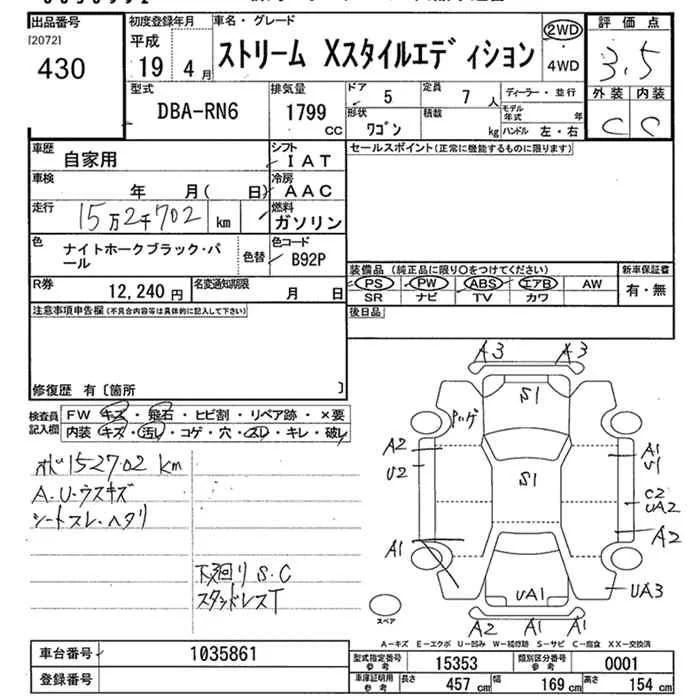 出品番号 初度登録年月 車名・グレード 評価点
[2072]
430 平成 19 4月 ストリーム Xスタイルエディション 2WD・4WD 3.5
外装 内装
C C
型式 排気量 ドア 定員 ディーラー・並行
DBA-RN6 1799 CC 5 7人
形状 積載 モデル年式 年
ワゴン kg ハンドル 左・右
車歴 自家用 シフト IAT セールスポイント(正常に機能するものに限ります)
車検 年 月( 日) 冷房 AAC
走行 15万2千702 km 燃料 ガソリン
色 ナイトホークブラック・パール 色替 色コード B92P
装備品 (純正品に限り○をつけてください) 新車保証書
PS PW ABS エアB AW 有・無
SR ナビ TV カワ
R券 12,240円 名変通知期限 月 日
後日品
注意事項申告欄(不具合内容等は具体的に記入して下さい)
修復歴 有〔箇所 〕
検査員記入欄 FW キズ・飛石・ヒビ割・リペア跡・×要
内装 キズ・汚し・コゲ・穴・スレ・キレ・破レ
オド152702 km
A.U.ウスキズ
シートスレ・ヘタリ
下廻り S.C
スタッドレスT
A3 A3
S1
ハゲ
A2 A1
U2 U1
S1
C2
UA2
A1 A2
UA1 UA3
スペア
A2 A1 A1
A=キズ E=エクボ U=凹み W=補修跡 S=サビ C=腐食 XX=交換済
車台番号 1035861
登録番号
型式指定番号 参考 15353 類別区分番号 参考 0001
車庫証明用 参考 長さ 457 cm 幅 169 cm 高さ 154 cm